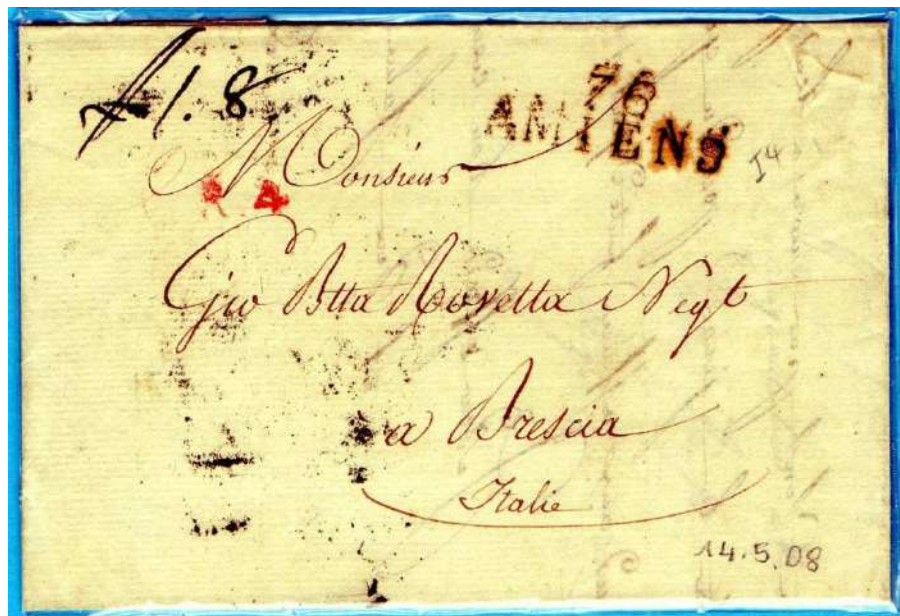 1.8
76
AMIENS
Monsieur
R.4
J4
Gio Btta Rovetta Negt
a Brescia
Italie
14.5.08